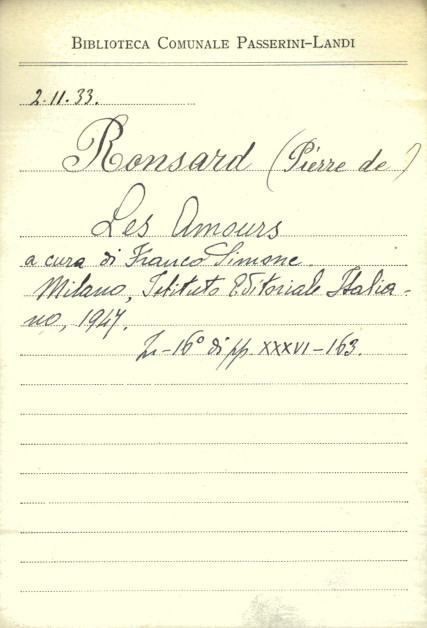 BIBLIOTECA COMUNALE PASSERINI-LANDI
2.11.33.
Ronsard (Pierre de)
Les Amours
a cura di Franco Simone.
Milano, Istituto Editoriale Italia-
no, 1947.
In-16° di pp. XXXVI-163.